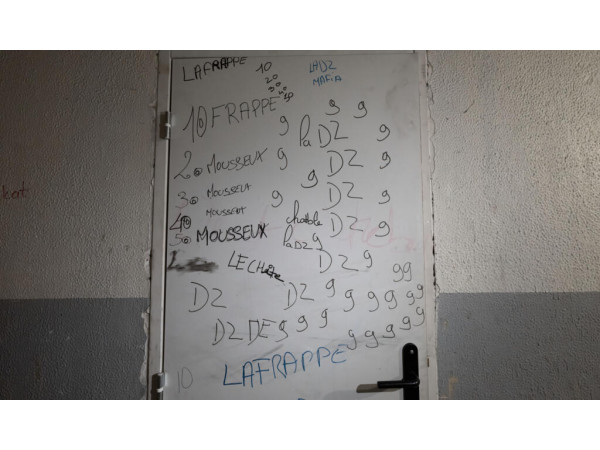 LAFRAPPE 10 LADZ
20 MAFIA
10 FRAPPE 9 9
9 la DZ 9
20 MOUSSEUX 9 DZ 9
30 MOUSSEUX 9 9 DZ 9
40 MOUSSEUX DZ 9
50 MOUSSEUX la DZ 9
LE CH DZ 9 99
DZ DZ 9 9 9 9 9 9
DZ DE 9 9 9 9 9 9 9 9
10 LAFRAPPE